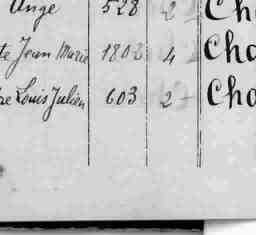 Ange 528 2 Cha
te Jean Marie 1802 4 Cha
re Louis Julien 603 2 Cha